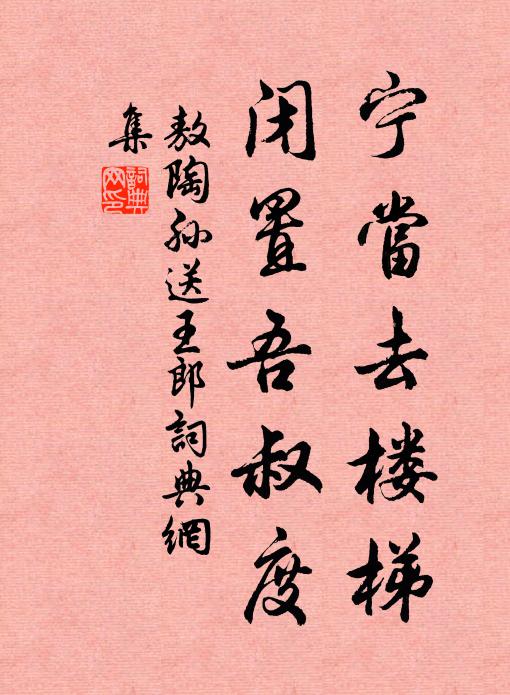 宁當去楼梯
闭置吾叔度
敖陶孙送王郎詞典網
集
詞典
网印